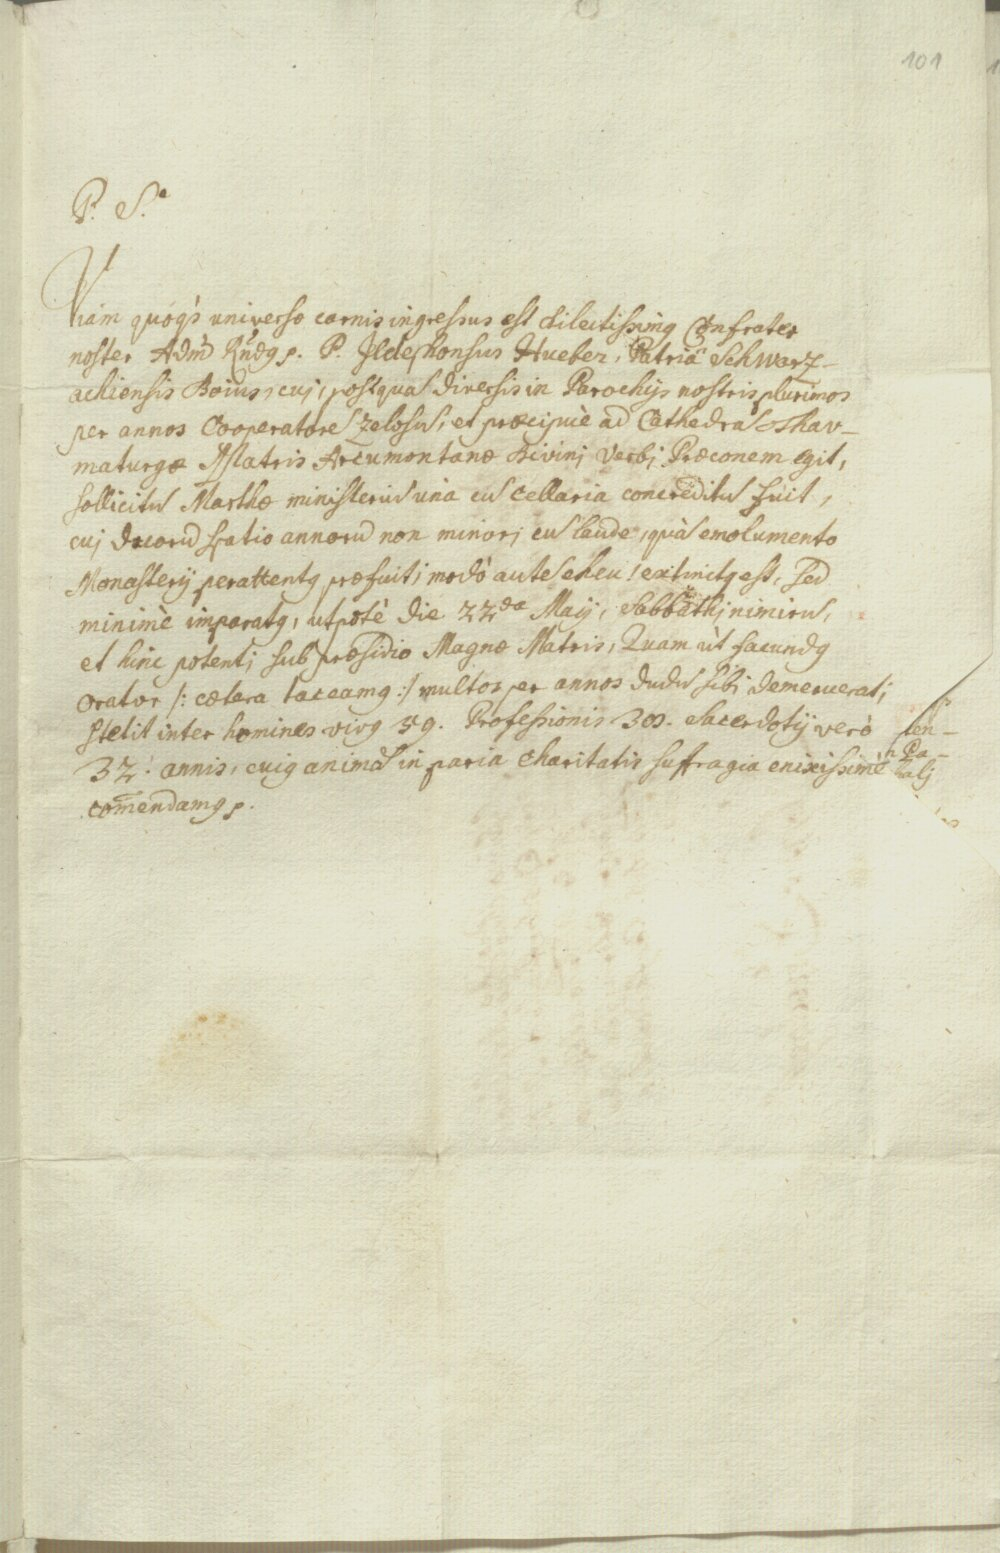 101
P. S.
Viam quóq3 universæ carnis ingressus est dilectissimq Confrater
noster Adm̄ R̄ndq p. P. Ildephonsus Hueber, Patriâ Schwarz-
achiensis Boius, cuj, postquā diversis in Parochijs nostris plurimos
per annos Cooperatorē zelosū, et præcipuè ad Cathedrā Thau-
maturgæ Matris Arcumontanæ Divinj Verbj Præconem egit,
sollicitū Marthæ ministeriū unà cū Cellaria concreditū fuit,
cuj Decorū spatio annorū non minorj cū laude, quàm emolumento
Monasterij perattentq præfuit; modò autē eheu! extinctq est, sed
minimè imparatq, utpotè die 22da Maij, Sabbathj nimirū,
et hinc potentj sub præsidio Magnæ Matris, Quam ùt facundq
orator /: cætera taceamq :/ multos per annos dudū sibj demeruerat;
Stetit inter homines vivq 59. Professionis 3os. Sacerdotij verò
32. annis, cuiq animā in paria charitatis suffragia enixissimè
com̄endamq p.
len-
n Pa-
halj